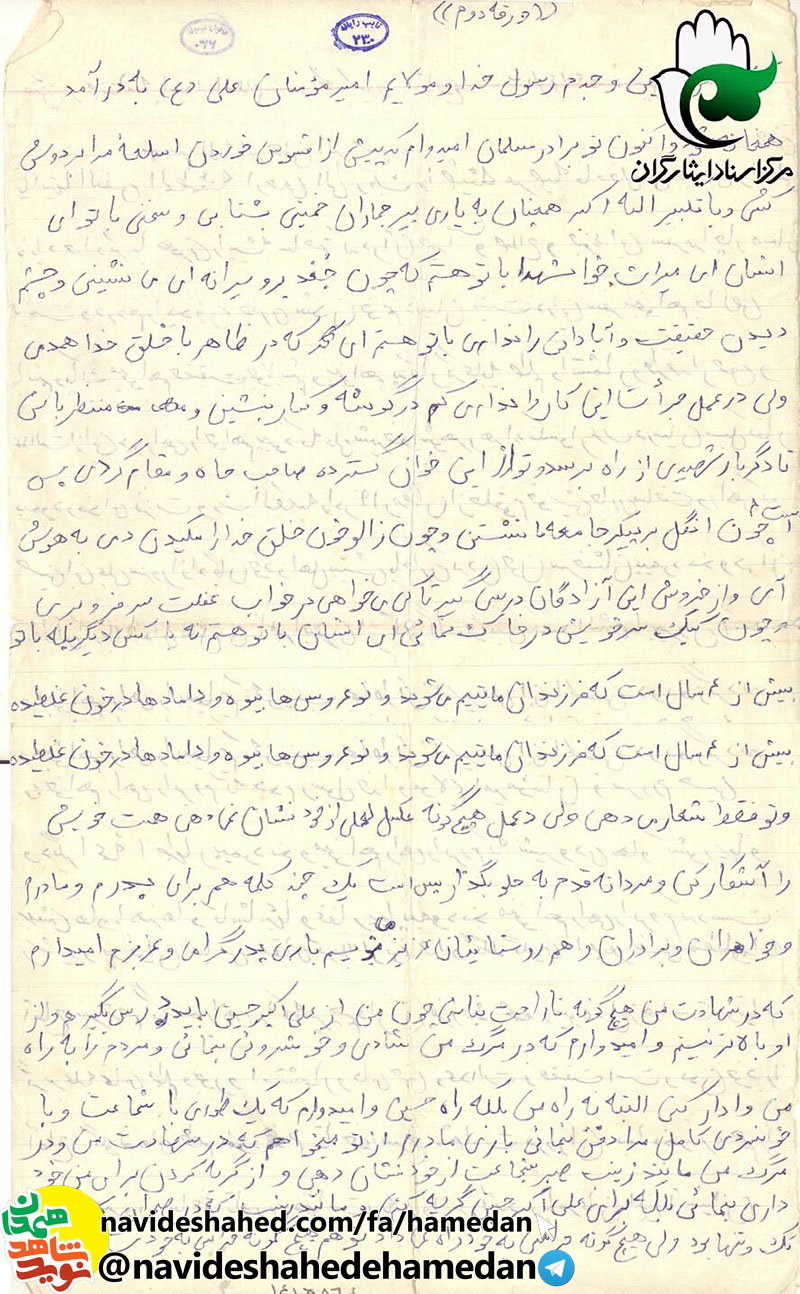 ((ورقه دوم))
تایپ رایانه
۲۳۰
۰۶۶
مرکز اسناد ایثارگران
و جدم رسول خدا و مولایم امیر مؤمنان علی (ع) به در آمد
و اکنون تو برادر مسلمان امیدوارم که پیش از افسوس خوردن اسلحهٔ مرا بر دوش
کشی و با تکبیر الله اکبر همچنان به یاری پیر جماران خمینی بشتابی و سخنی با تو ای
انسان ای میراث خوار شهدا با تو هستم که چون جُغد بر ویرانه ای می نشینی و چشم
دیدن حقیقت و آبادانی را نداری با تو هستم ای که در ظاهر با خلق خدا همدمی
ولی در عمل جرأت این کار را نداری که در گوشه و کنار بنشین و منتظر باش
تا دگر بار شهیدی از راه برسد و تو از این خوان گسترده صاحب جاه و مقام گردی بس
است چون انگل بر پیکر جامعه ما نشستن و چون زالو خون خلق خدا را مکیدن دمی به هوش
آی و از خروش این آزادگان درس گیر تا کی می خواهی در خواب غفلت سر فرو بری
و چون کبک سر خویش در خاک نمائی ای انسان با تو هستم نه با کس دیگر بلکه با تو
بیش از ۶ سال است که فرزندان ما یتیم می شوند و نو عروس ها بیوه و دامادها در خون غلطیده
بیش از ۶ سال است که فرزندان ما یتیم می شوند و نو عروس ها بیوه و دامادها در خون غلطیده
و تو فقط شعار می دهی ولی در عمل هیچ گونه عکس العملی از خود نشان نمی دهی همت خویش
را آشکار کن و مردانه قدم به جلو بگذار بس است یک چند کلمه هم برای پدرم و مادرم
و خواهران و برادران و هم روستائیان عزیز بنویسم باری پدر گرامی و عزیزم امیدوارم
که در شهادت من هیچ گونه ناراحت نباشی چون من از علی اکبر حسین باید درس بگیرم و از
او بالاتر نیستم و امیدوارم که در مرگ من شادی و خوشروئی بنمائی و مردم را به راه
من وادار کنی البته نه راه من بلکه راه حسین و امیدوارم که یک طوری با شجاعت و با
خونسردی کامل مرا دفن بنمائی باری مادرم از تو میخواهم که در شهادت من و در
مرگ من مانند زینب صبر شجاعت از خود نشان دهی و از گریه کردن برای من خود
داری بنمائی بلکه برای علی اکبر حسین گریه کنی و مانند زینب که در صحرای
تک و تنها بود ولی هیچ گونه به خود راه نداد تو هم هیچ گونه به خود
navideshahed.com/fa/hamedan
@navideshahedehamedan
نوید شاهد همدان